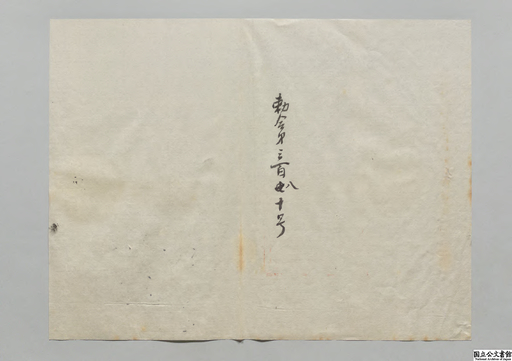 勅令第三百八十号
国立公文書館
National Archives of Japan